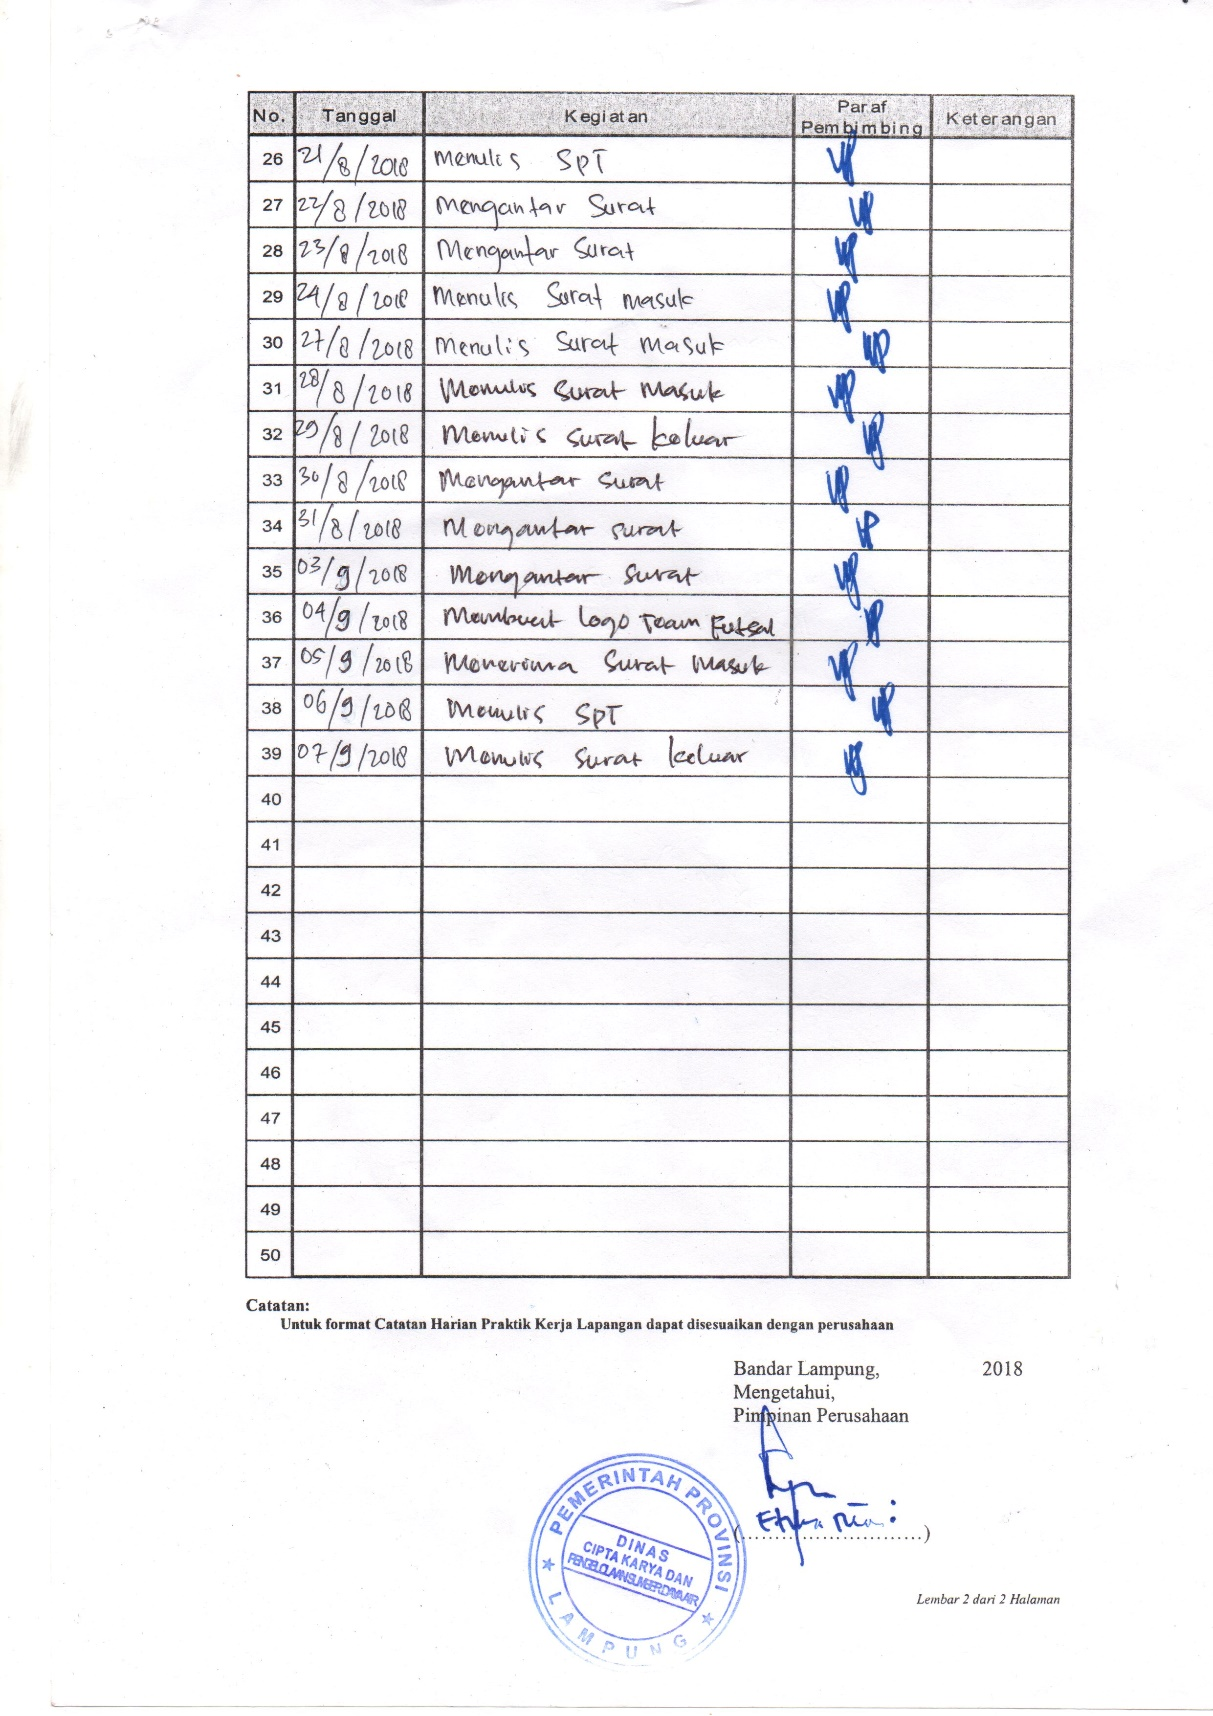 No. Tanggal Kegiatan Paraf Pembimbing Keterangan
26 21/8/2018 Menulis SPT
27 22/8/2018 Mengantar Surat
28 23/8/2018 Mengantar Surat
29 24/8/2018 Menulis Surat masuk
30 27/8/2018 Menulis Surat Masuk
31 28/8/2018 Menulis Surat Masuk
32 29/8/2018 Menulis surat keluar
33 30/8/2018 Mengantar Surat
34 31/8/2018 Mengantar surat
35 03/9/2018 Mengantar Surat
36 04/9/2018 Membuat Logo Team Futsal
37 05/9/2018 Menerima Surat Masuk
38 06/9/2018 Menulis SPT
39 07/9/2018 Menulis Surat keluar
40
41
42
43
44
45
46
47
48
49
50
Catatan:
Untuk format Catatan Harian Praktik Kerja Lapangan dapat disesuaikan dengan perusahaan
Bandar Lampung, 2018
Mengetahui,
Pimpinan Perusahaan
PEMERINTAH PROVINSI
DINAS
CIPTA KARYA DAN
PENGELOLAAN SUMBER DAYA AIR
LAMPUNG
Lembar 2 dari 2 Halaman